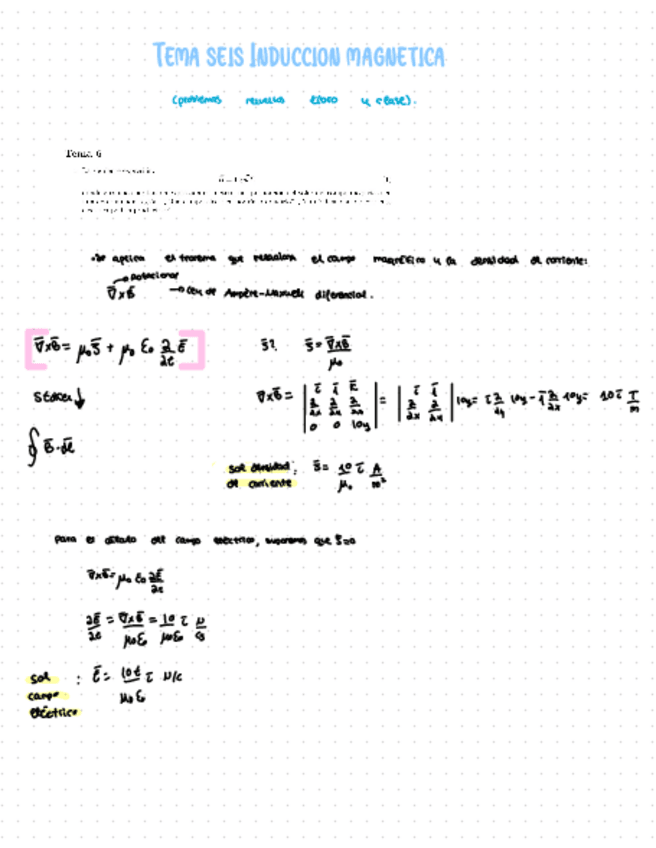 TEMA SEIS INDUCCION MAGNETICA
(problemas resueltos libro y clase).
Tema 6
·Se aplica el teorema que relaciona el campo magnético y la densidad de corriente:
→ rotacional
∇×B̄ → Ley de Ampère-Maxwell diferencial.
∇̄×B̄ = μ₀J̄ + μ₀ ε₀ ∂/∂t Ē
J̄? J̄ = ∇̄×B̄/μ₀
Stokes ↓
∇×B̄ = | ī j̄ k̄ ; ∂/∂x ∂/∂y ∂/∂z ; 0 0 10y | = | ī j̄ ; ∂/∂x ∂/∂y | 10y = ī ∂/∂y 10y - j̄ ∂/∂x 10y = 10 ī T/m
∮ B̄·dl̄
sol densidad de corriente : J̄ = 10/μ₀ ī A/m²
para el cálculo del campo eléctrico, suponemos que J̄=0
∇×B̄ = μ₀ ε₀ ∂Ē/∂t
∂Ē/∂t = ∇×B̄/μ₀ε₀ = 10/μ₀ε₀ ī N/Cs
sol campo eléctrico : Ē = 10t/μ₀ε₀ ī N/C